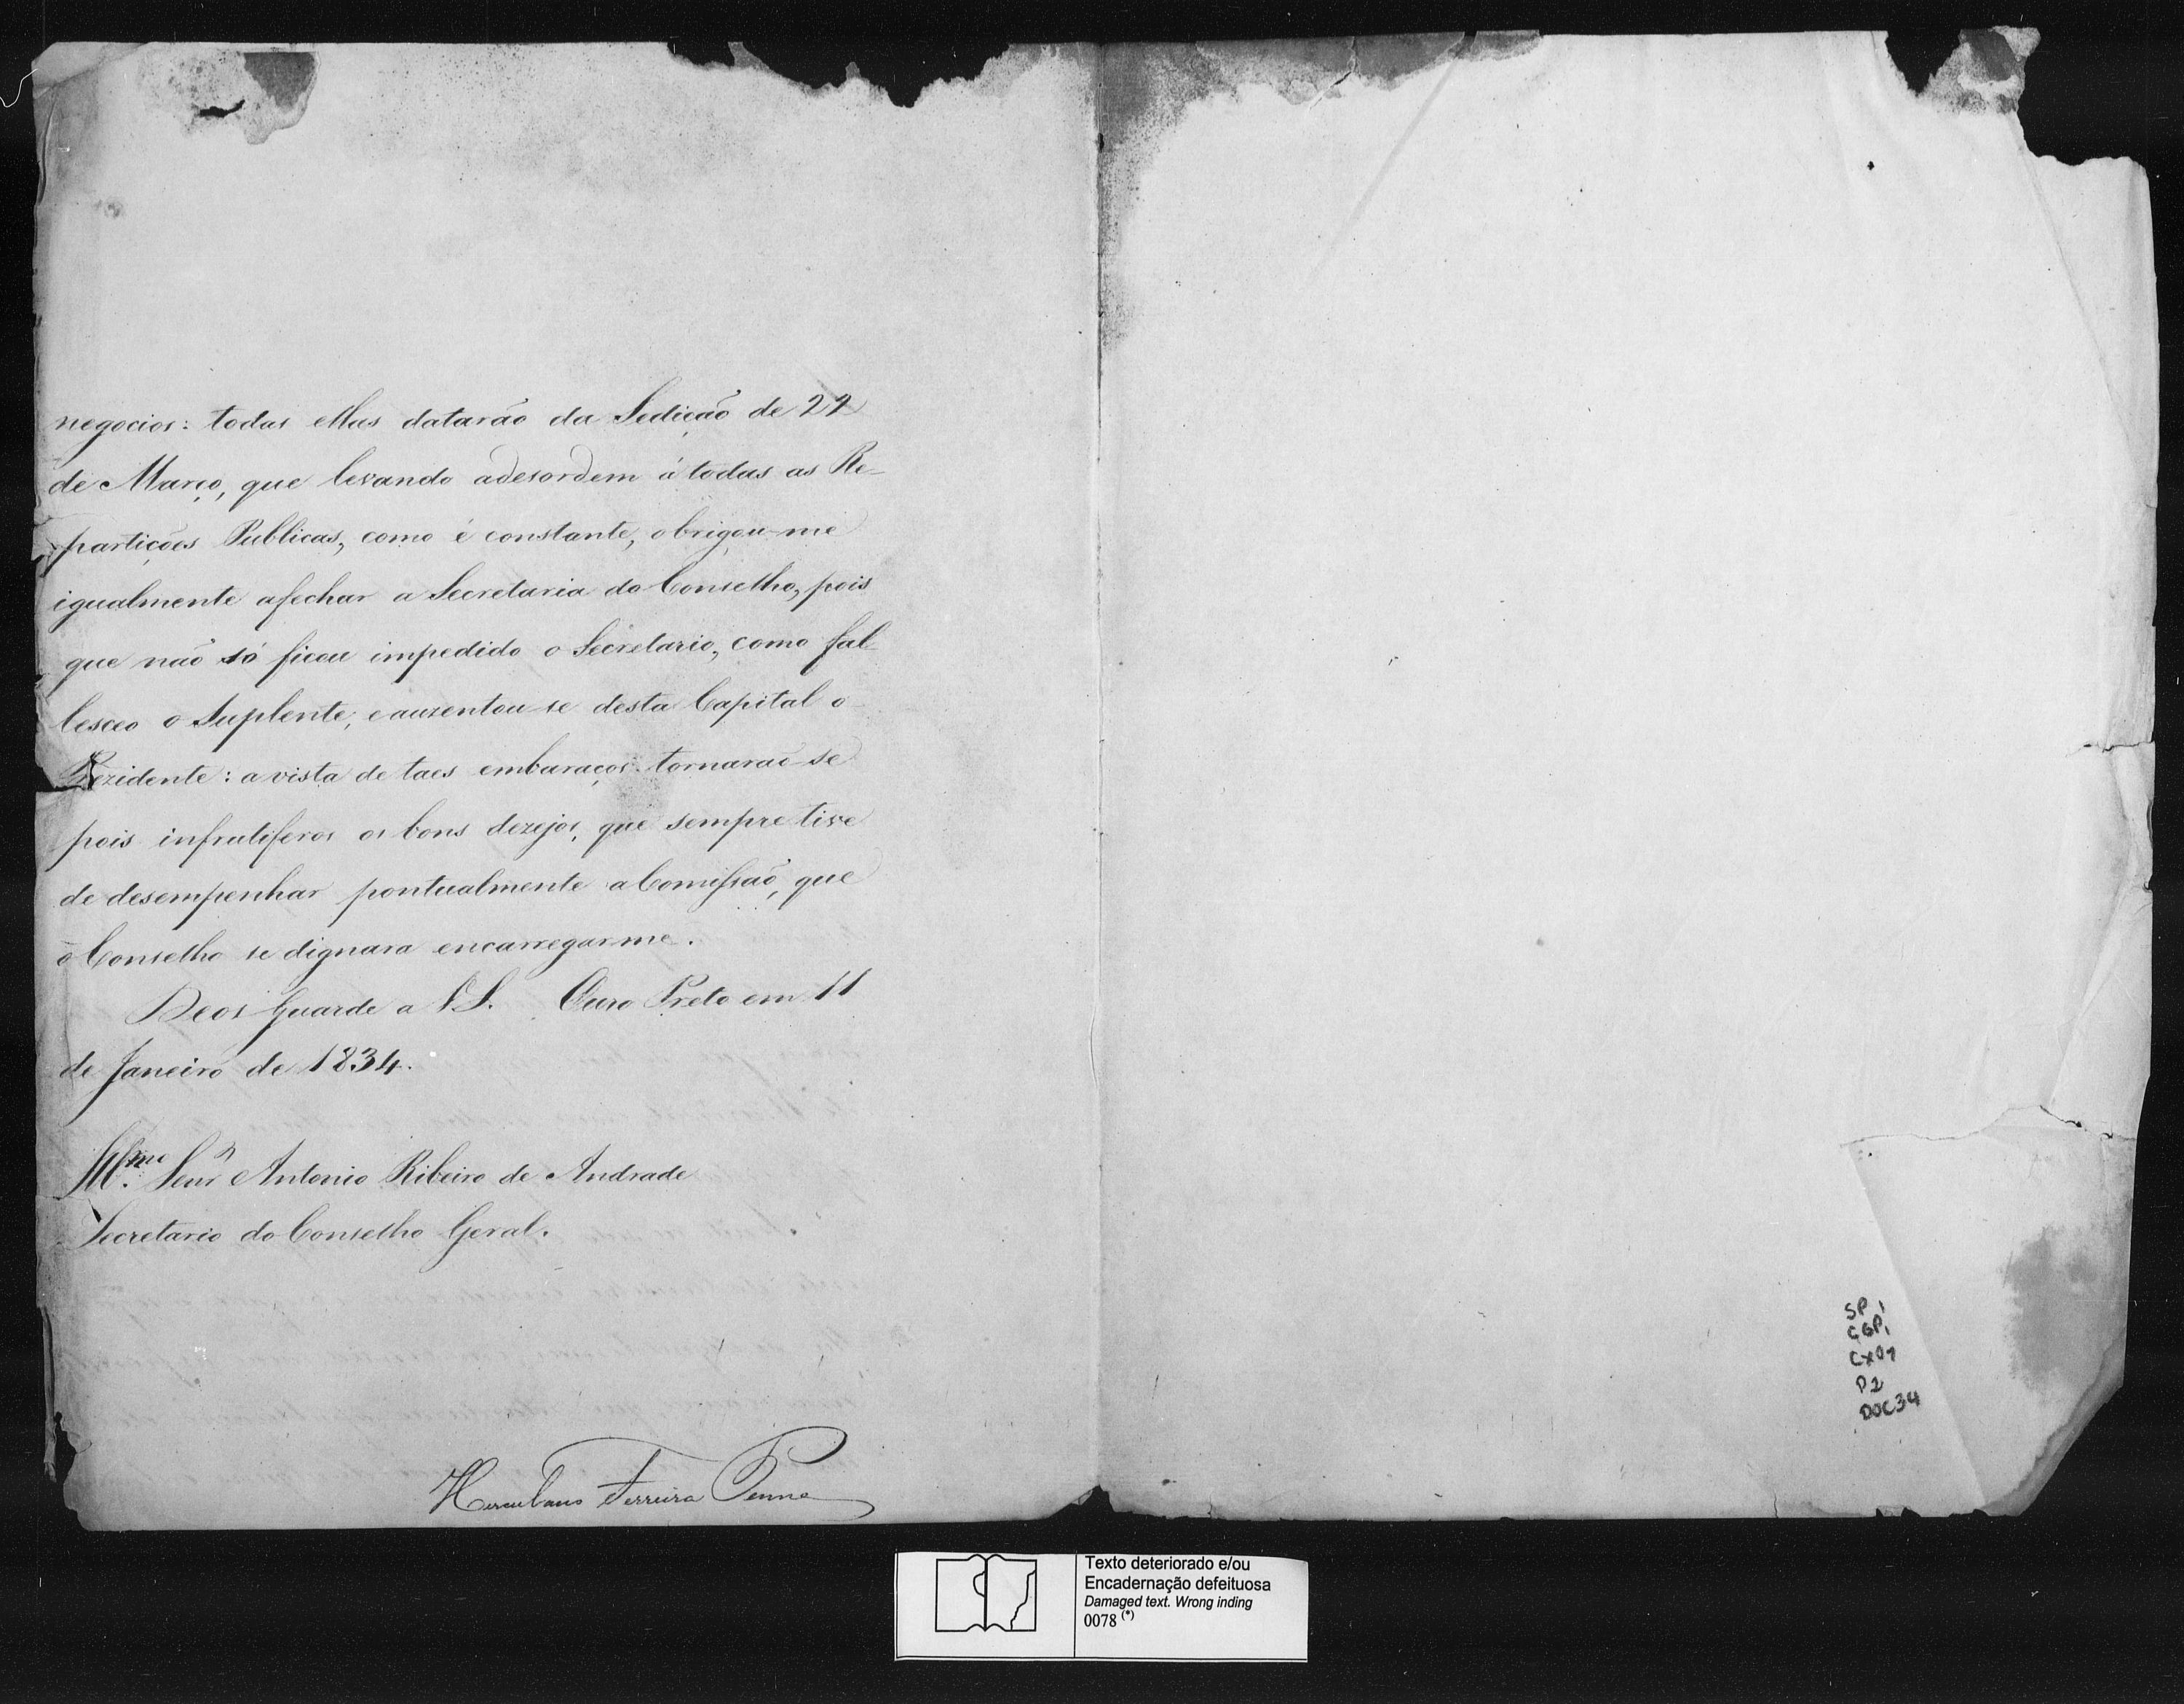 negocios: todas ellas datarão da Sedição de 22
de Março, que levando adesordem á todas as Re-
partições Publicas, como é constante, obrigou-me
igualmente afechar a Secretaria do Conselho, pois
que não só ficou impedido o Secretario, como fal-
lesceo o Suplente, eauzentou-se desta Capital o
Prezidente: avista de taes embaraços tornarão-se
pois infrutiferos os bons dezejos, que sempre tive
de desempenhar pontualmente aComissão, que
oConselho se dignara encarregarme.
Deos Guarde a V.S. Ouro Preto em 11
de Janeiro de 1834.
Illmo. Senr. Antonio Ribeiro de Andrade
Secretario do Conselho Geral.
Herculano Ferreira Penna
SP,
CGP,
Cx01
P2
DOC34
Texto deteriorado e/ou
Encadernação defeituosa
Damaged text. Wrong inding
0078 (*)